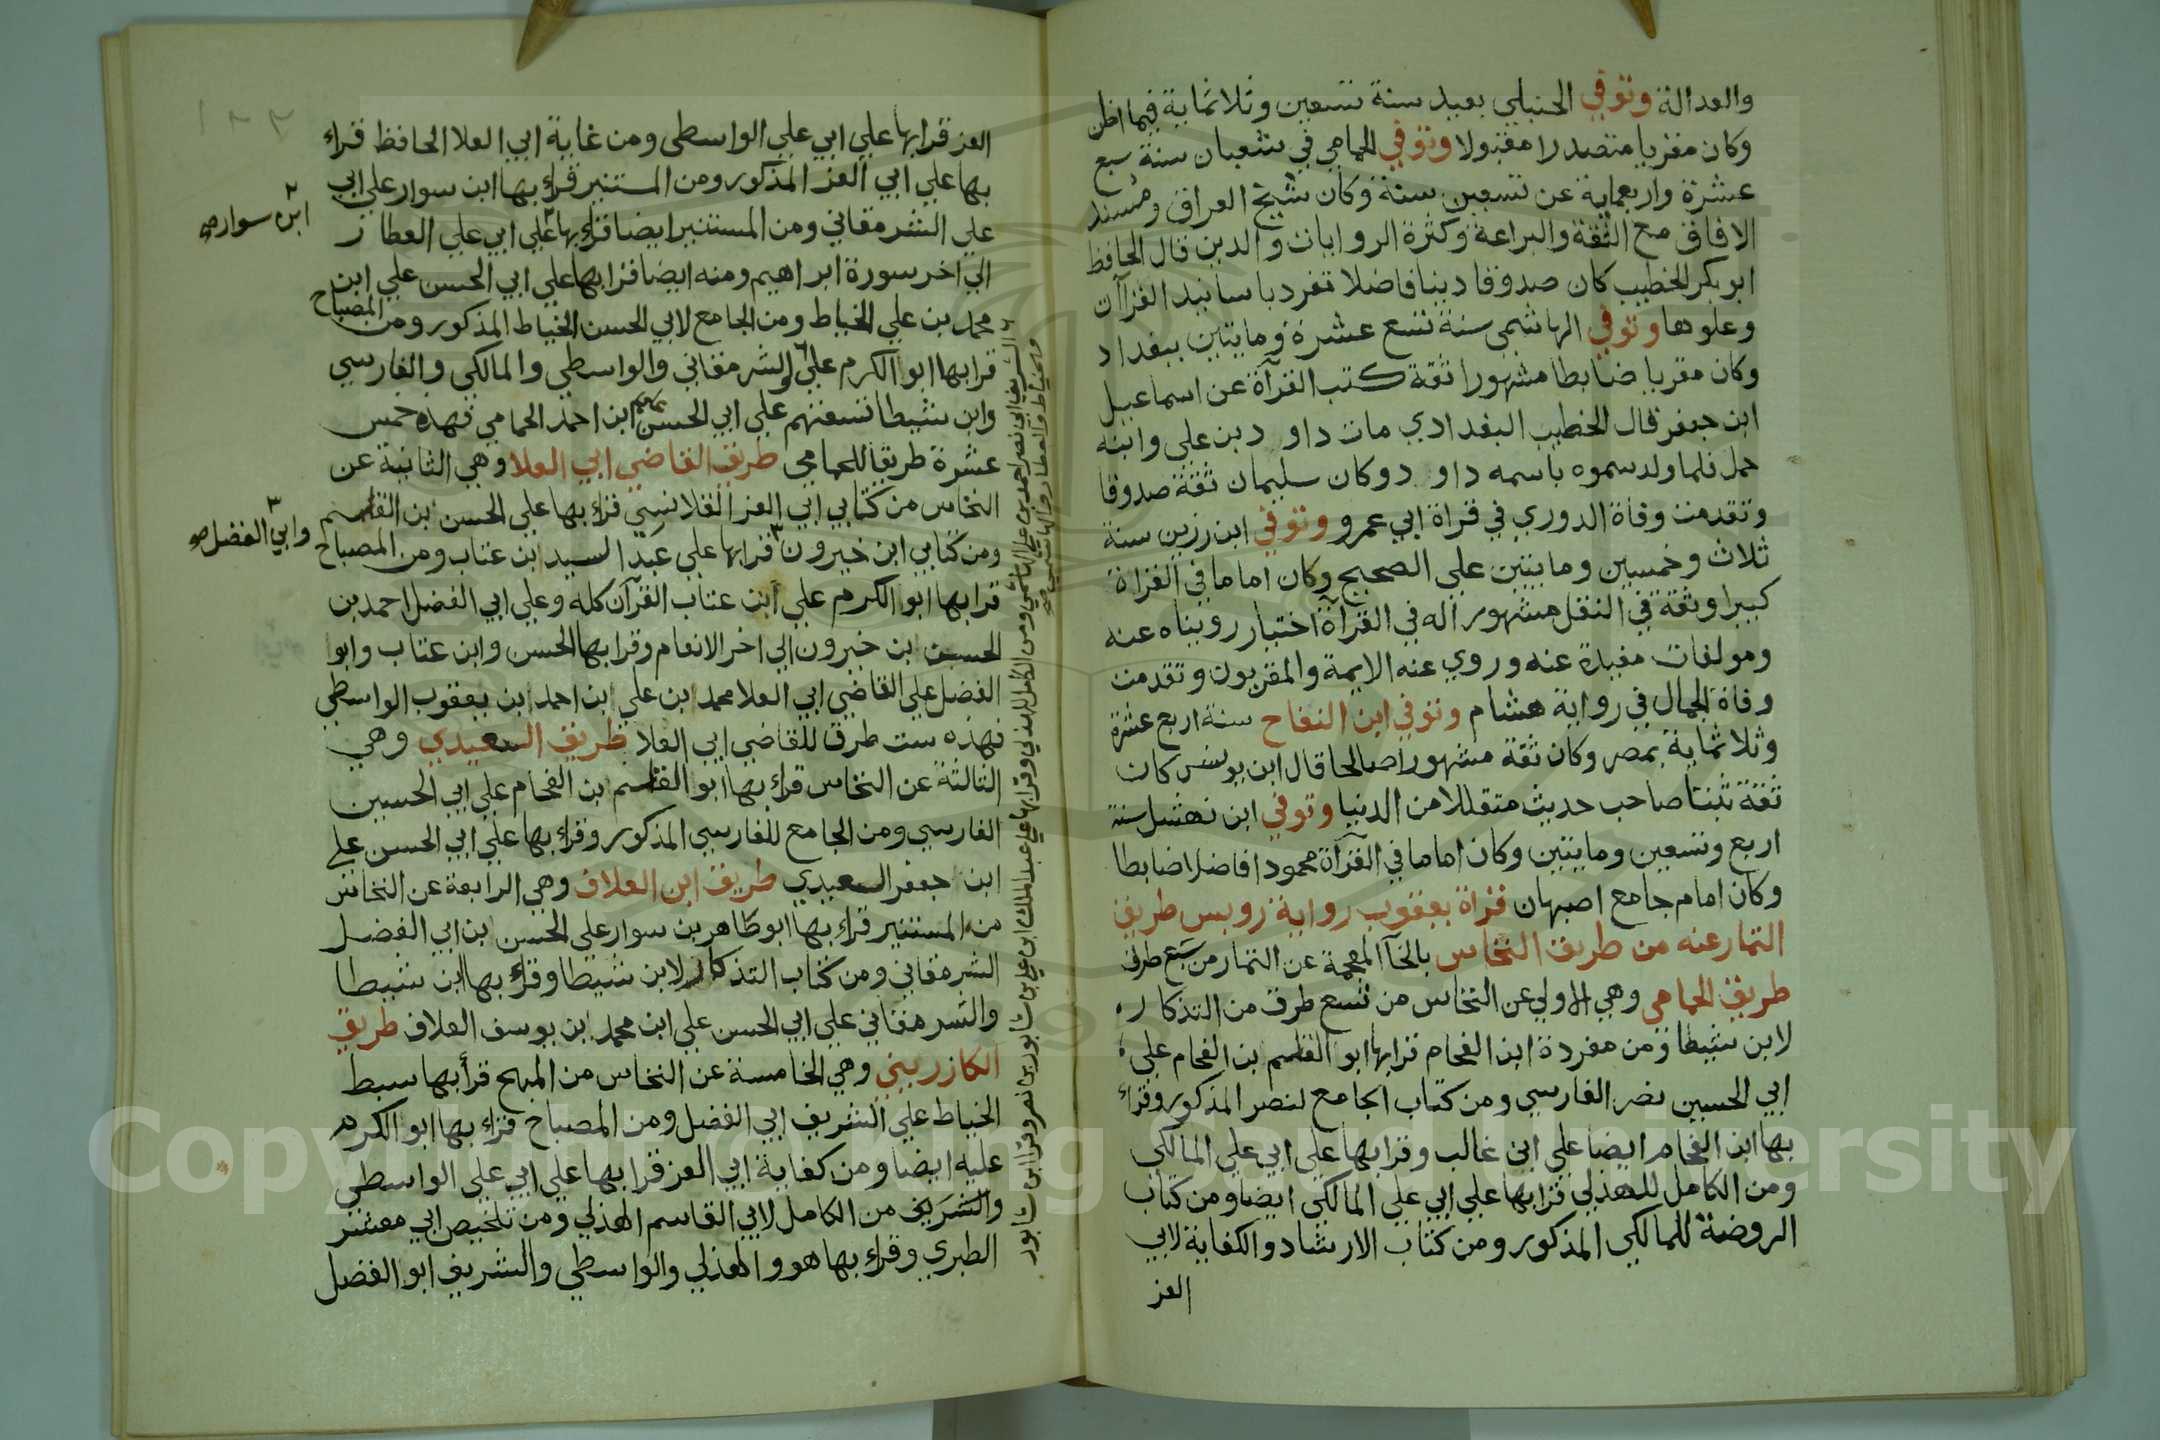 والعدالة وتوفي الحنبلي بعيد سنة تسعين وثلاثماية فيما اظن
وكان مقريا متصدرا مقبولا وتوفي الحمامي في شعبان سنة سبع
عشرة واربعماية عن تسعين سنة وكان شيخ العراق ومسند
الافاق مع الثقة والبراعة وكثرة الروايات والدين قال الحافظ
ابو بكر الخطيب كان صدوقا دينا فاضلا تفرد باسانيد القرآن
وعلوها وتوفي الهاشمي سنة تسع عشرة ومايتين ببغداد
وكان مقريا ضابطا مشهورا ثقة كتب القرآة عن اسماعيل
ابن جعفر قال الخطيب البغدادي مات داود بن علي وابنه
حمل فلما ولد سموه باسمه داود وكان سليمان ثقة صدوقا
وتقدمت وفاة الدوري في قراة ابي عمرو وتوفي ابن رزين سنة
ثلاث وخمسين ومايتين علي الصحيح وكان اماما في القراة
كبيرا وثقة في النقل مشهورا له في القرآة اختيار رويناه عنه
ومولفات مفيدة عنه وروي عنه الايمة والمقريون وتقدمت
وفاة الجمال في رواية هشام وتوفي ابن النفاح سنة اربع عشرة
وثلاثماية بمصر وكان ثقة مشهورا صالحا قال ابن يونس كان
ثقة ثبتا صاحب حديث متقللا من الدنيا وتوفي ابن نهشل سنة
اربع وتسعين ومايتين وكان اماما في القرآة محمودا فاضلا ضابطا
وكان امام جامع اصبهان قراة يعقوب رواية رويس طريق
التمار عنه من طريق النخاس بالخآ المعجمة عن التمار من سبع طرق
طريق الحمامي وهي الاولي عن النخاس من تسع طرق من التذكار
لابن شيطا ومن مفردة ابن الفحام قرابها ابو القاسم بن الفحام علي
ابي الحسين نصر الفارسي ومن كتاب الجامع لنصر المذكور وقراء
بها ابن الفحام ايضا علي ابن غالب وقرابها علي ابي علي المالكي
ومن الكامل للهذلي قرابها علي ابي علي المالكي ايضا ومن كتاب
الروضة للمالكي المذكور ومن كتاب الارشاد والكفاية لابي
العز
العز قرابها علي ابي علي الواسطي ومن غاية ابي العلا الحافظ قراء
بها علي ابي العز المذكور ومن المستنير قراء بها ابن سوار علي ابي
علي الشرمقاني ومن المستنير ايضا قراء بها علي ابي علي العطار
الي اخر سورة ابراهيم ومنه ايضا قرابها علي ابي الحسن علي ابن
محمد بن علي الخياط ومن الجامع لابي الحسن الخياط المذكور ومن المصباح
قرابها ابو الكرم علي والشرمقاني والواسطي والمالكي والفارسي
وابن شيطا تسعتهم علي ابي الحسن ابن احمد الحمامي فهذه خمس
عشرة طريقا للحمامي طريق القاضي ابي العلا وهي الثانية عن
النخاس من كتابي ابي العز القلانسي قراء بها علي الحسن بن القاسم
ومن كتابي ابن خيرون قرابها علي عبد السيد ابن عتاب ومن المصباح
قرابها ابو الكرم علي ابن عتاب القرآن كله وعلي ابي الفضل احمد بن
الحسن بن خيرون الي اخر الانعام وقرابها الحسن وابن عتاب وابو
الفضل علي القاضي ابي العلا محمد ابن علي ابن احمد ابن يعقوب الواسطي
فهذه ست طرق للقاضي ابي العلا طريق السعيدي وهي
الثالثة عن النخاس قراء بها ابو القاسم بن الفحام علي ابي الحسين
الفارسي ومن الجامع للفارسي المذكور وقراء بها علي ابي الحسن علي
ابن جعفر السعيدي طريق ابن العلاف وهي الرابعة عن النخاس
من المستنير قراء بها ابو طاهر بن سوار علي الحسن بن ابي الفضل
الشرمقاني ومن كتاب التذكار لابن شيطا وقراء بها ابن شيطا
والشرمقاني علي ابي الحسن علي ابن محمد ابن يوسف العلاف طريق
الكارزيني وهي الخامسة عن النخاس من المبهج قرأ بها سبط
الخياط علي الشريف ابي الفضل ومن المصباح قراء بها ابو الكرم
عليه ايضا ومن كفاية ابي العز قرابها علي ابي علي الواسطي
والشريف من الكامل لابي القاسم الهذلي ومن تلخيص ابي معشر
الطبري وقراء بها هو والهذلي والواسطي والشريف ابو الفضل
ابن سوار صح
وابي الفضل صح
Copyright © King Saud University